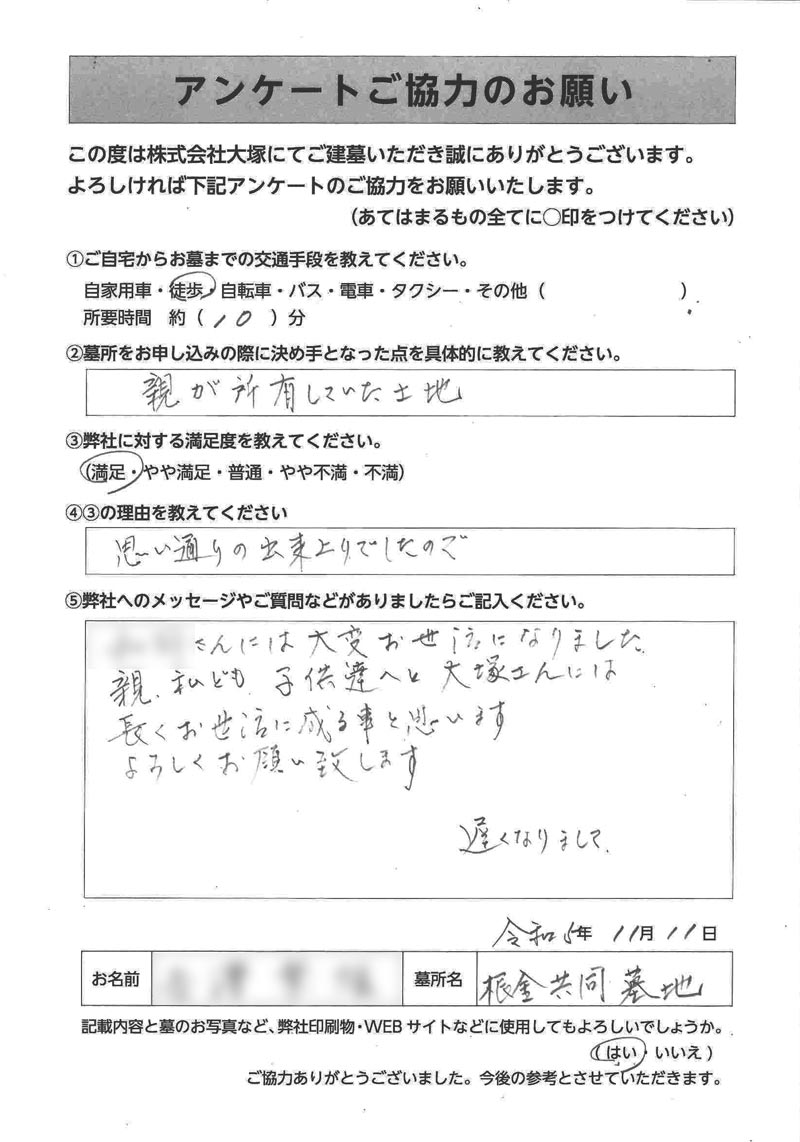 アンケートご協力のお願い
この度は株式会社大塚にてご建墓いただき誠にありがとうございます。
よろしければ下記アンケートのご協力をお願いいたします。
（あてはまるもの全てに〇印をつけてください）
①ご自宅からお墓までの交通手段を教えてください。
自家用車・徒歩・自転車・バス・電車・タクシー・その他（　　　　　　　）
所要時間　約（ 10 ）分
②墓所をお申し込みの際に決め手となった点を具体的に教えてください。
親が所有していた土地
③弊社に対する満足度を教えてください。
（満足・やや満足・普通・やや不満・不満）
④③の理由を教えてください
思い通りの出来上りでしたので
⑤弊社へのメッセージやご質問などがありましたらご記入ください。
さんには大変お世話になりました
親、私ども、子供達へと大塚さんには
長くお世話に成る事と思います
よろしくお願い致します
遅くなりまして、
令和5年 11月 11日
お名前
墓所名 根金共同墓地
記載内容と墓のお写真など、弊社印刷物・WEBサイトなどに使用してもよろしいでしょうか。
（はい・いいえ）
ご協力ありがとうございました。今後の参考とさせていただきます。